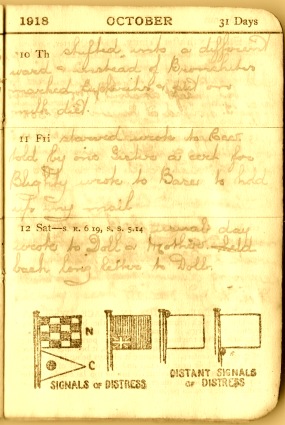 1918 OCTOBER 31 Days
10 Th shifted into a different
ward & instead of Bronchitis
marked &
milk diet.
11 Fri wrote to
told by one Sister a cert for
Blighty wrote to Base to hold
up my mail
12 Sat—S. R. 6 19, S. S. 5.14 usual day
wrote to Doll & Mother held
back long letter to Doll.
N
C
SIGNALS OF DISTRESS
DISTANT SIGNALS
OF DISTRESS